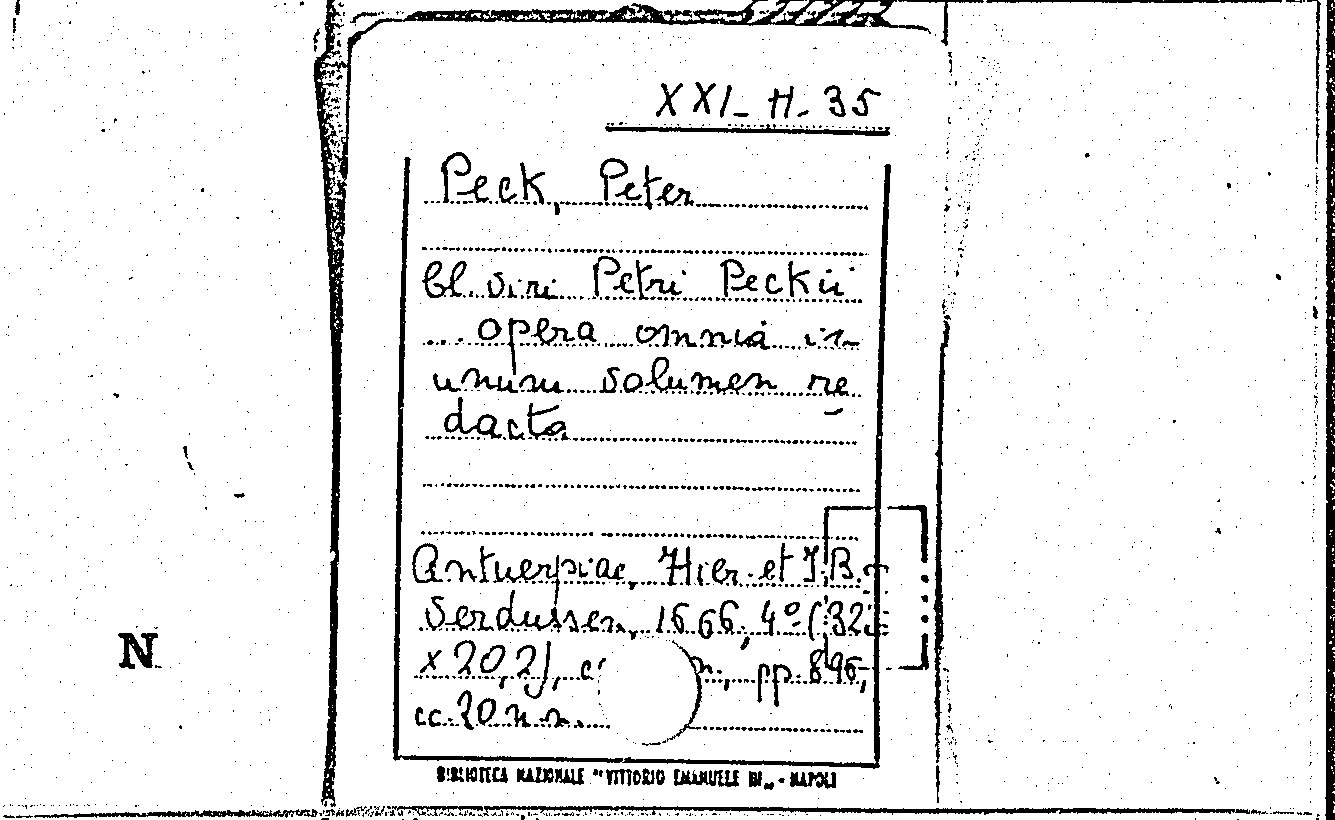 XXI_ H. 35
Peck, Peter
Cl. viri Petri Peckii
... opera omnia in
unum volumen re
dacta
Antuerpiae, Hier. et I.B.
Verdussen, 1666, 4º (32
x 20,2), n., pp. 896,
cc. 20 n. n.
N
BIBLIOTECA NAZIONALE "VITTORIO EMANUELE III„ - NAPOLI